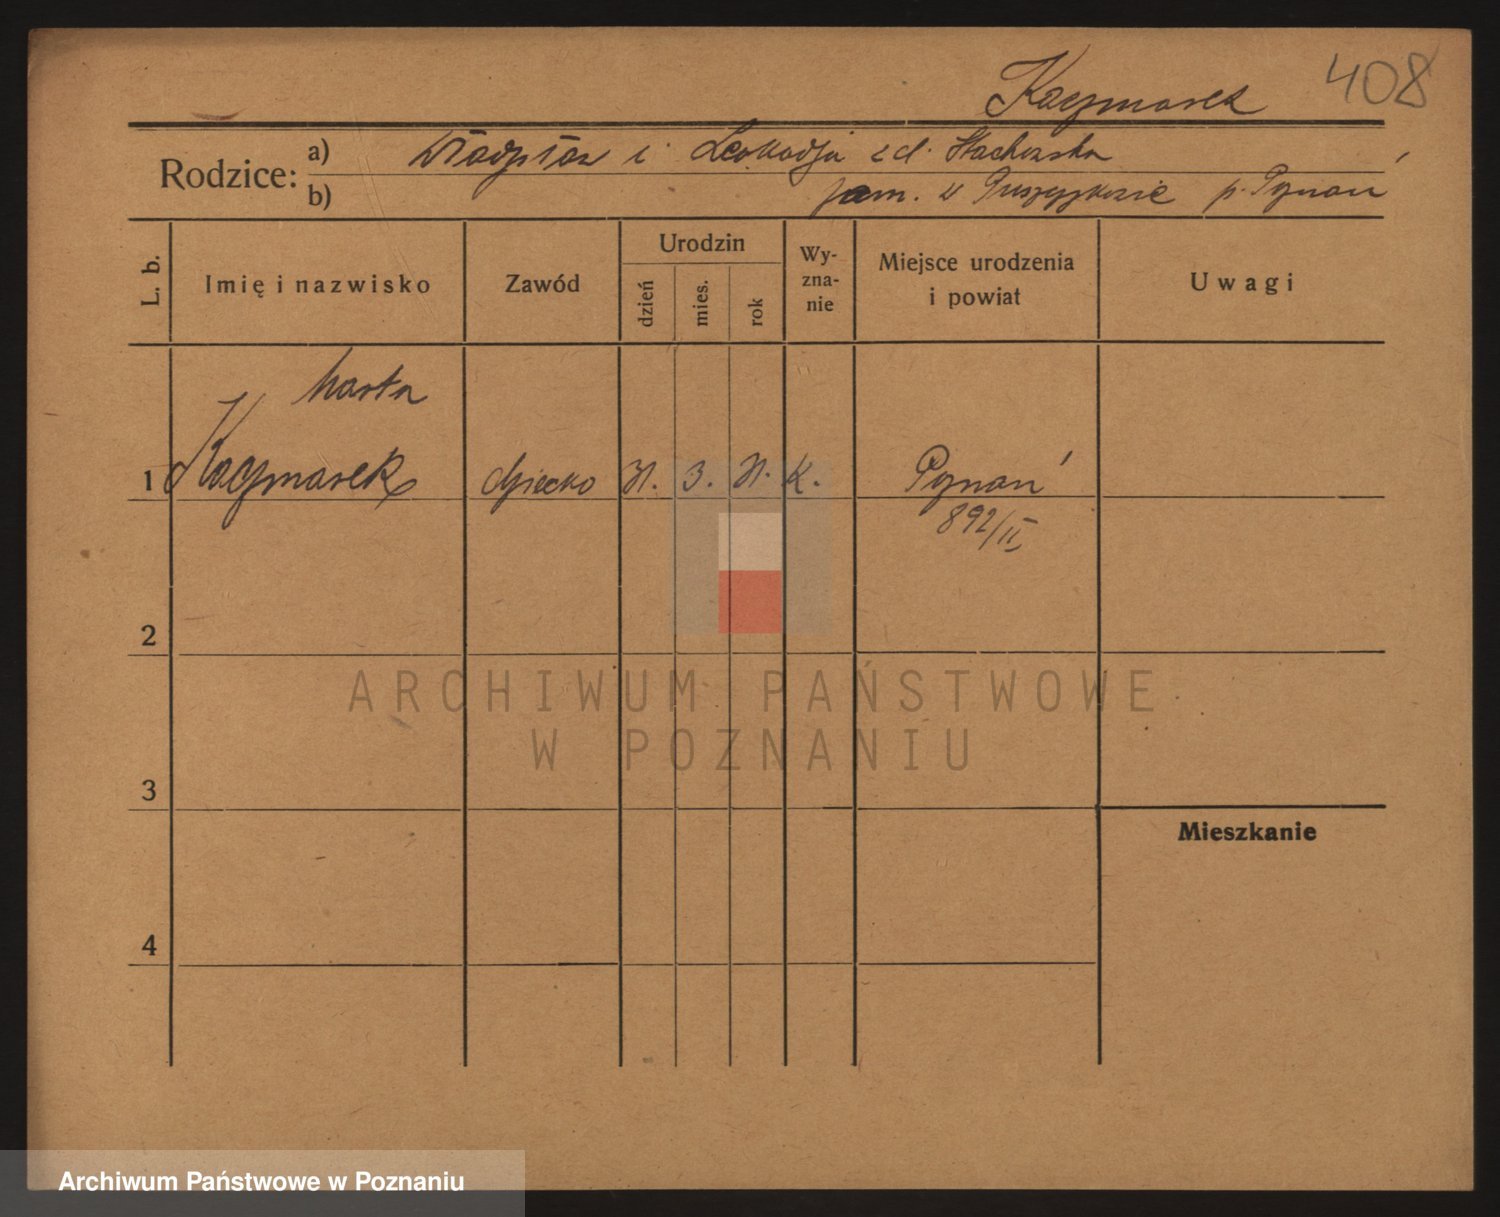 Kaczmarek 408
Rodzice: a) Władysław i Leokadja z d. Stachowska
b) zam. w Puszczykowie p. Poznań
L. b. Imię i nazwisko Zawód Urodzin dzień mies. rok Wy-zna-nie Miejsce urodzenia i powiat Uwagi
Marta
1 Kaczmarek dziecko 31. 3. 31. K. Poznań
892/II
2
ARCHIWUM PAŃSTWOWE
W POZNANIU
3
Mieszkanie
4
Archiwum Państwowe w Poznaniu